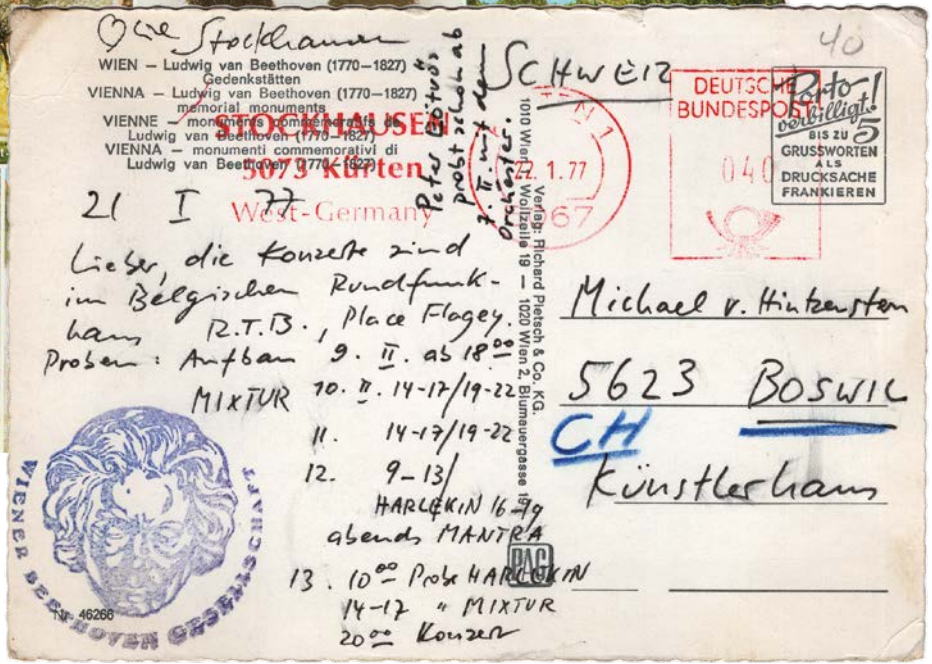 Stockhausen
WIEN – Ludwig van Beethoven (1770–1827)
Gedenkstätten
VIENNA – Ludwig van Beethoven (1770–1827)
memorial monuments
VIENNE – monuments commemoratifs de
Ludwig van Beethoven (1770–1827)
VIENNA – monumenti commemorativi di
Ludwig van Beethoven (1770–1827)
STOCKHAUSEN
5073 Kürten
West-Germany
21 I 77
Lieber, die Konzerte sind
im Belgischen Rundfunk-
haus R.T.B., Place Flagey.
Proben: Aufbau 9. II. ab 18⁰⁰
MIXTUR 10. II. 14-17/19-22
11. 14-17/19-22
12. 9-13/
HARLEKIN 16-19
abends MANTRA
13. 10⁰⁰ Probe HARLEKIN
14-17 " MIXTUR
20⁰⁰ Konzert
Peter Eötvös
probt schon ab
7. II. mit dem
Orchester.
WIENER BEETHOVEN GESELLSCHAFT
Nr. 46266
Verlag: Richard Pietsch & Co. KG.
1010 Wien 1, Wollzeile 19 — 1020 Wien 2, Blumauergasse
PAG
SCHWEIZ
40
1.77
DEUTSCHE
BUNDESPOST
040
Porto
verbilligt!
BIS ZU 5
GRUSSWORTEN
ALS
DRUCKSACHE
FRANKIEREN
Michael v. Hintzenstern
5623 BOSWIL
CH
Künstlerhaus